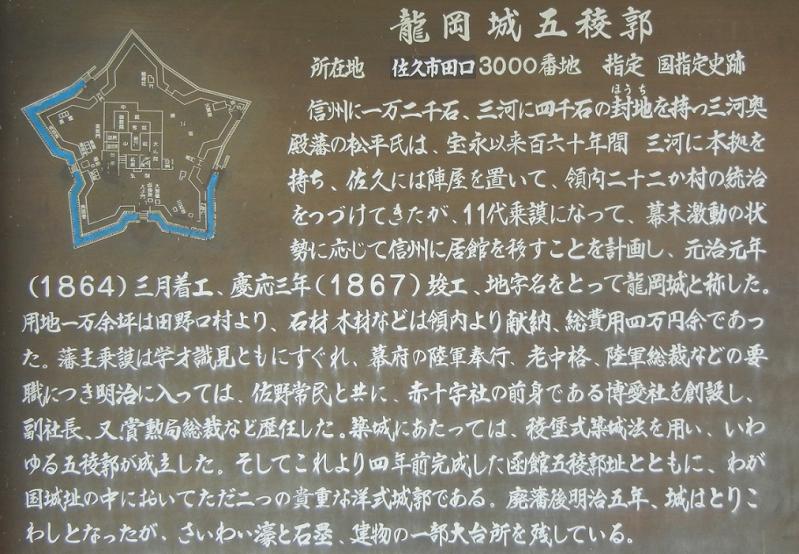 龍岡城五稜郭
所在地 佐久市田口3000番地 指定 国指定史跡
ほうち
信州に一万二千石、三河に四千石の封地を持つ三河奥
殿藩の松平氏は、宝永以来百六十年間 三河に本拠を
持ち、佐久には陣屋を置いて、領内二十二か村の統治
をつづけてきたが、11代乗謨になって、幕末激動の状
勢に応じて信州に居館を移すことを計画し、元治元年
(1864)三月着工、慶応三年(1867)竣工、地字名をとって龍岡城と称した。
用地一万余坪は田野口村より、石材木材などは領内より献納、総費用四万円余であっ
た。藩主乗謨は学才識見ともにすぐれ、幕府の陸軍奉行、老中格、陸軍総裁などの要
職につき明治に入っては、佐野常民と共に、赤十字社の前身である博愛社を創設し、
副社長、又、賞勲局総裁など歴任した。築城にあたっては、稜堡式築城法を用い、いわ
ゆる五稜郭が成立した。そしてこれより四年前完成した函館五稜郭址とともに、わが
国城址の中においてただ二つの貴重な洋式城郭である。廃藩後明治五年、城はとりこ
わしとなったが、さいわい濠と石塁、建物の一部大台所を残している。